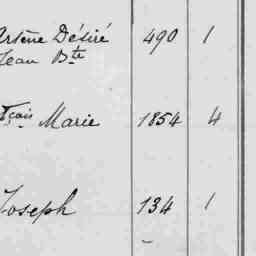 Arsène Désiré 490 1
Jean Bte
Fçois Marie 1854 4
Joseph 134 1